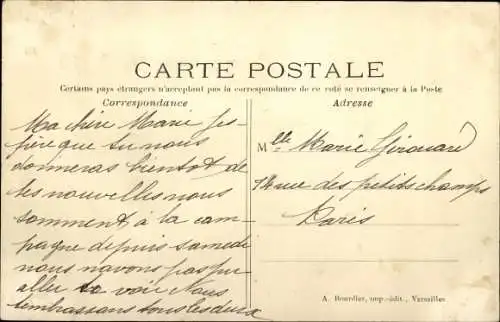 CARTE POSTALE
Certains pays étrangers n'acceptant pas la correspondance de ce coté se renseigner à la Poste
Correspondance
Adresse
Ma chère Marie jes-
père que tu nous
donneras bientot de
tes nouvelles nous
somment à la cam-
pagne depuis samedi
nous navons pas pu
aller te voir Nous
tembrassons tous les deux
Mlle Marie Girouard
14 rue des petits champs
Paris
A. Bourdier, imp.-édit., Versailles